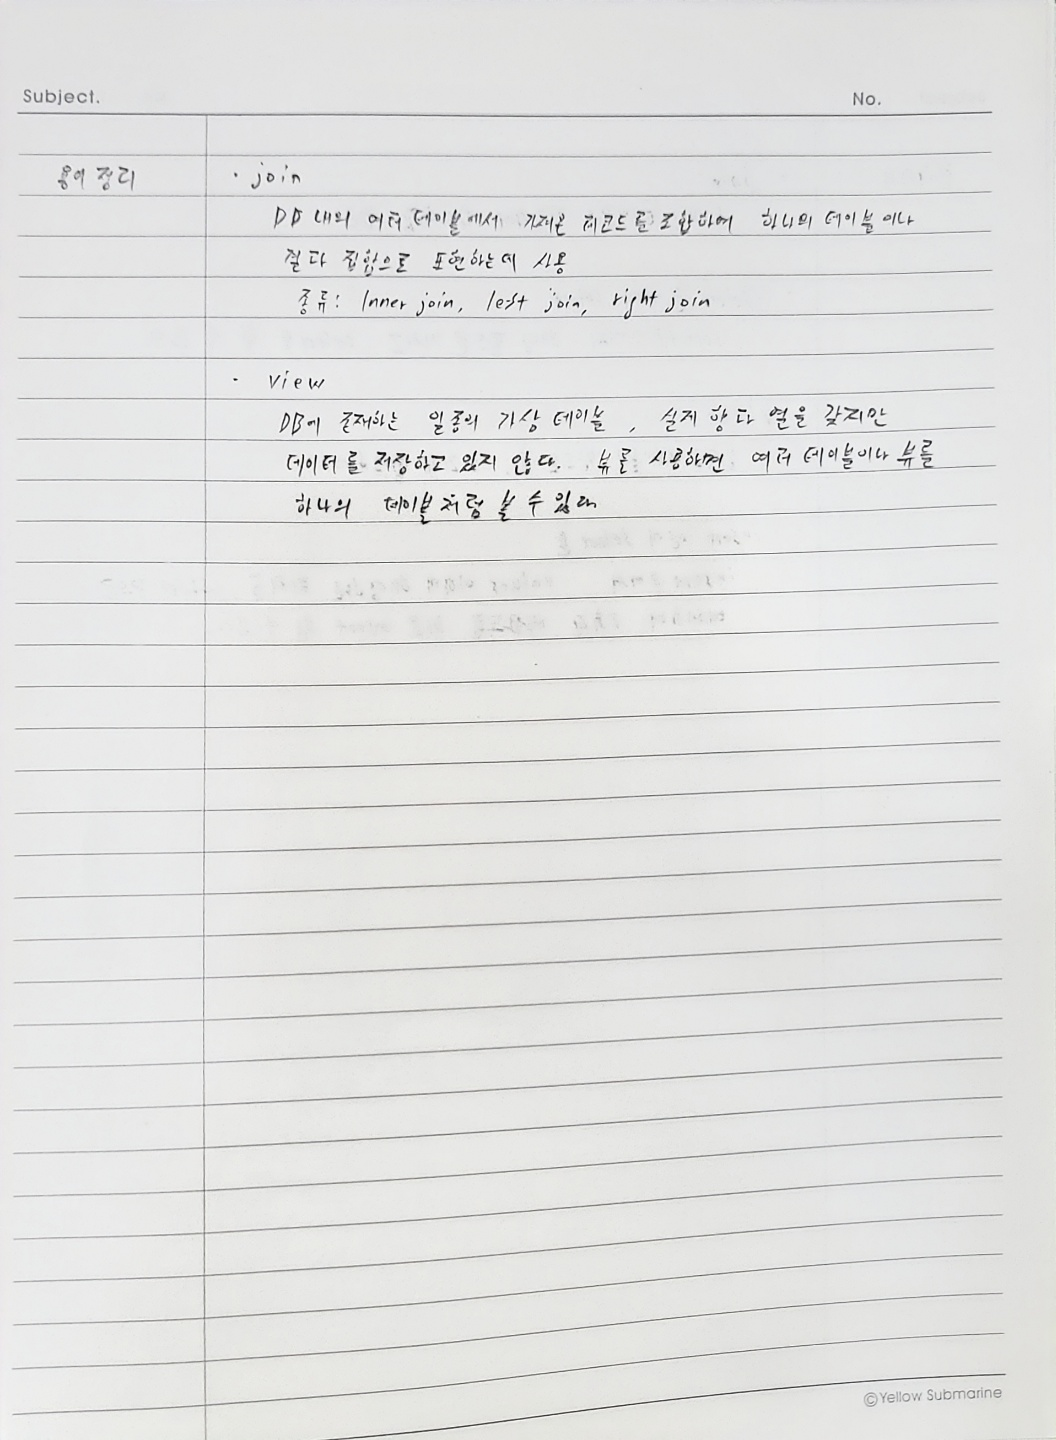 Subject.
No.
용어 정리
· join
DB 내의 여러 테이블에서 가져온 레코드를 조합하여 하나의 테이블이나
결과 집합으로 표현하는데 사용
종류: Inner join, left join, right join
· view
DB에 존재하는 일종의 가상 테이블, 실제 행과 열을 갖지만
데이터를 저장하고 있지 않다. 뷰를 사용하면 여러 테이블이나 뷰를
하나의 테이블처럼 볼 수 있다
©Yellow Submarine